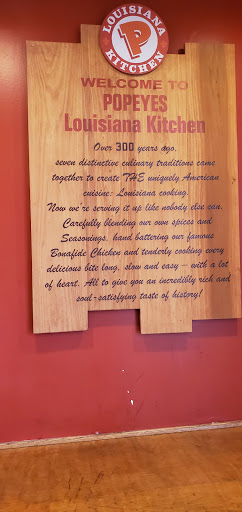 LOUISIANA
P
KITCHEN
WELCOME TO
POPEYES
Louisiana Kitchen
Over 300 years ago,
seven distinctive culinary traditions came
together to create THE uniquely American
cuisine: Louisiana cooking.
Now we're serving it up like nobody else can.
Carefully blending our own spices and
Seasonings, hand battering our famous
Bonafide Chicken and tenderly cooking every
delicious bite long, slow and easy – with a lot
of heart. All to give you an incredibly rich and
soul-satisfying taste of history!